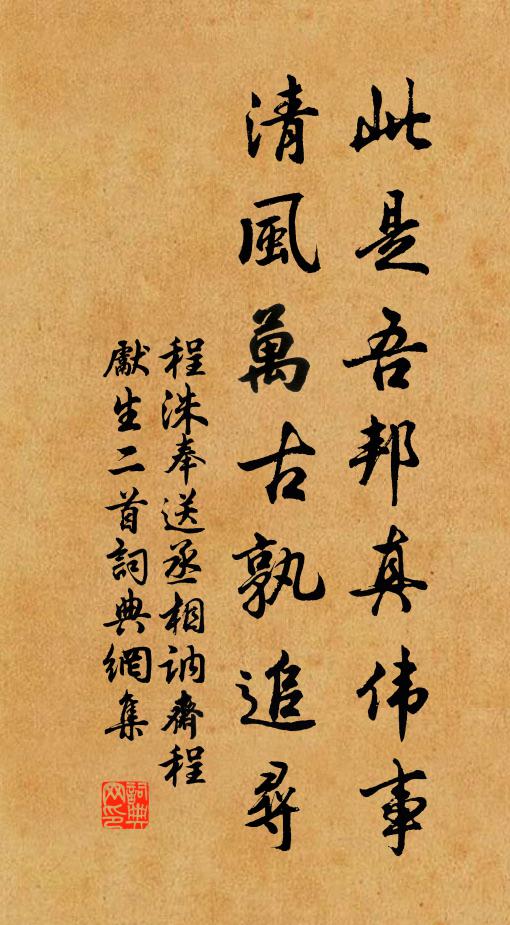 此是吾邦真伟事
清風萬古孰追尋
程洙奉送丞相訥齋程
獻生二首詞典網集
詞典网印